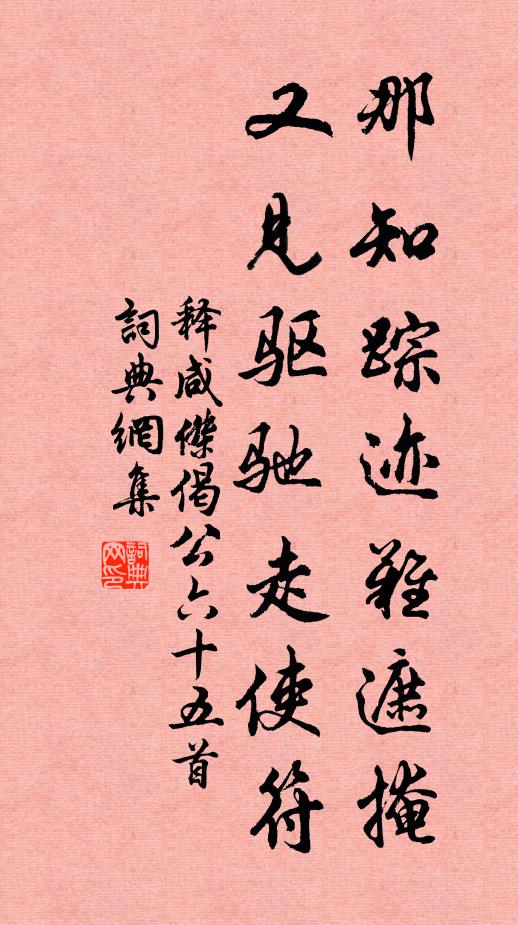 那知踪迹难遮掩
又见驱驰走使符
释咸傑偈公六十五首
詞典網集
詞典網印